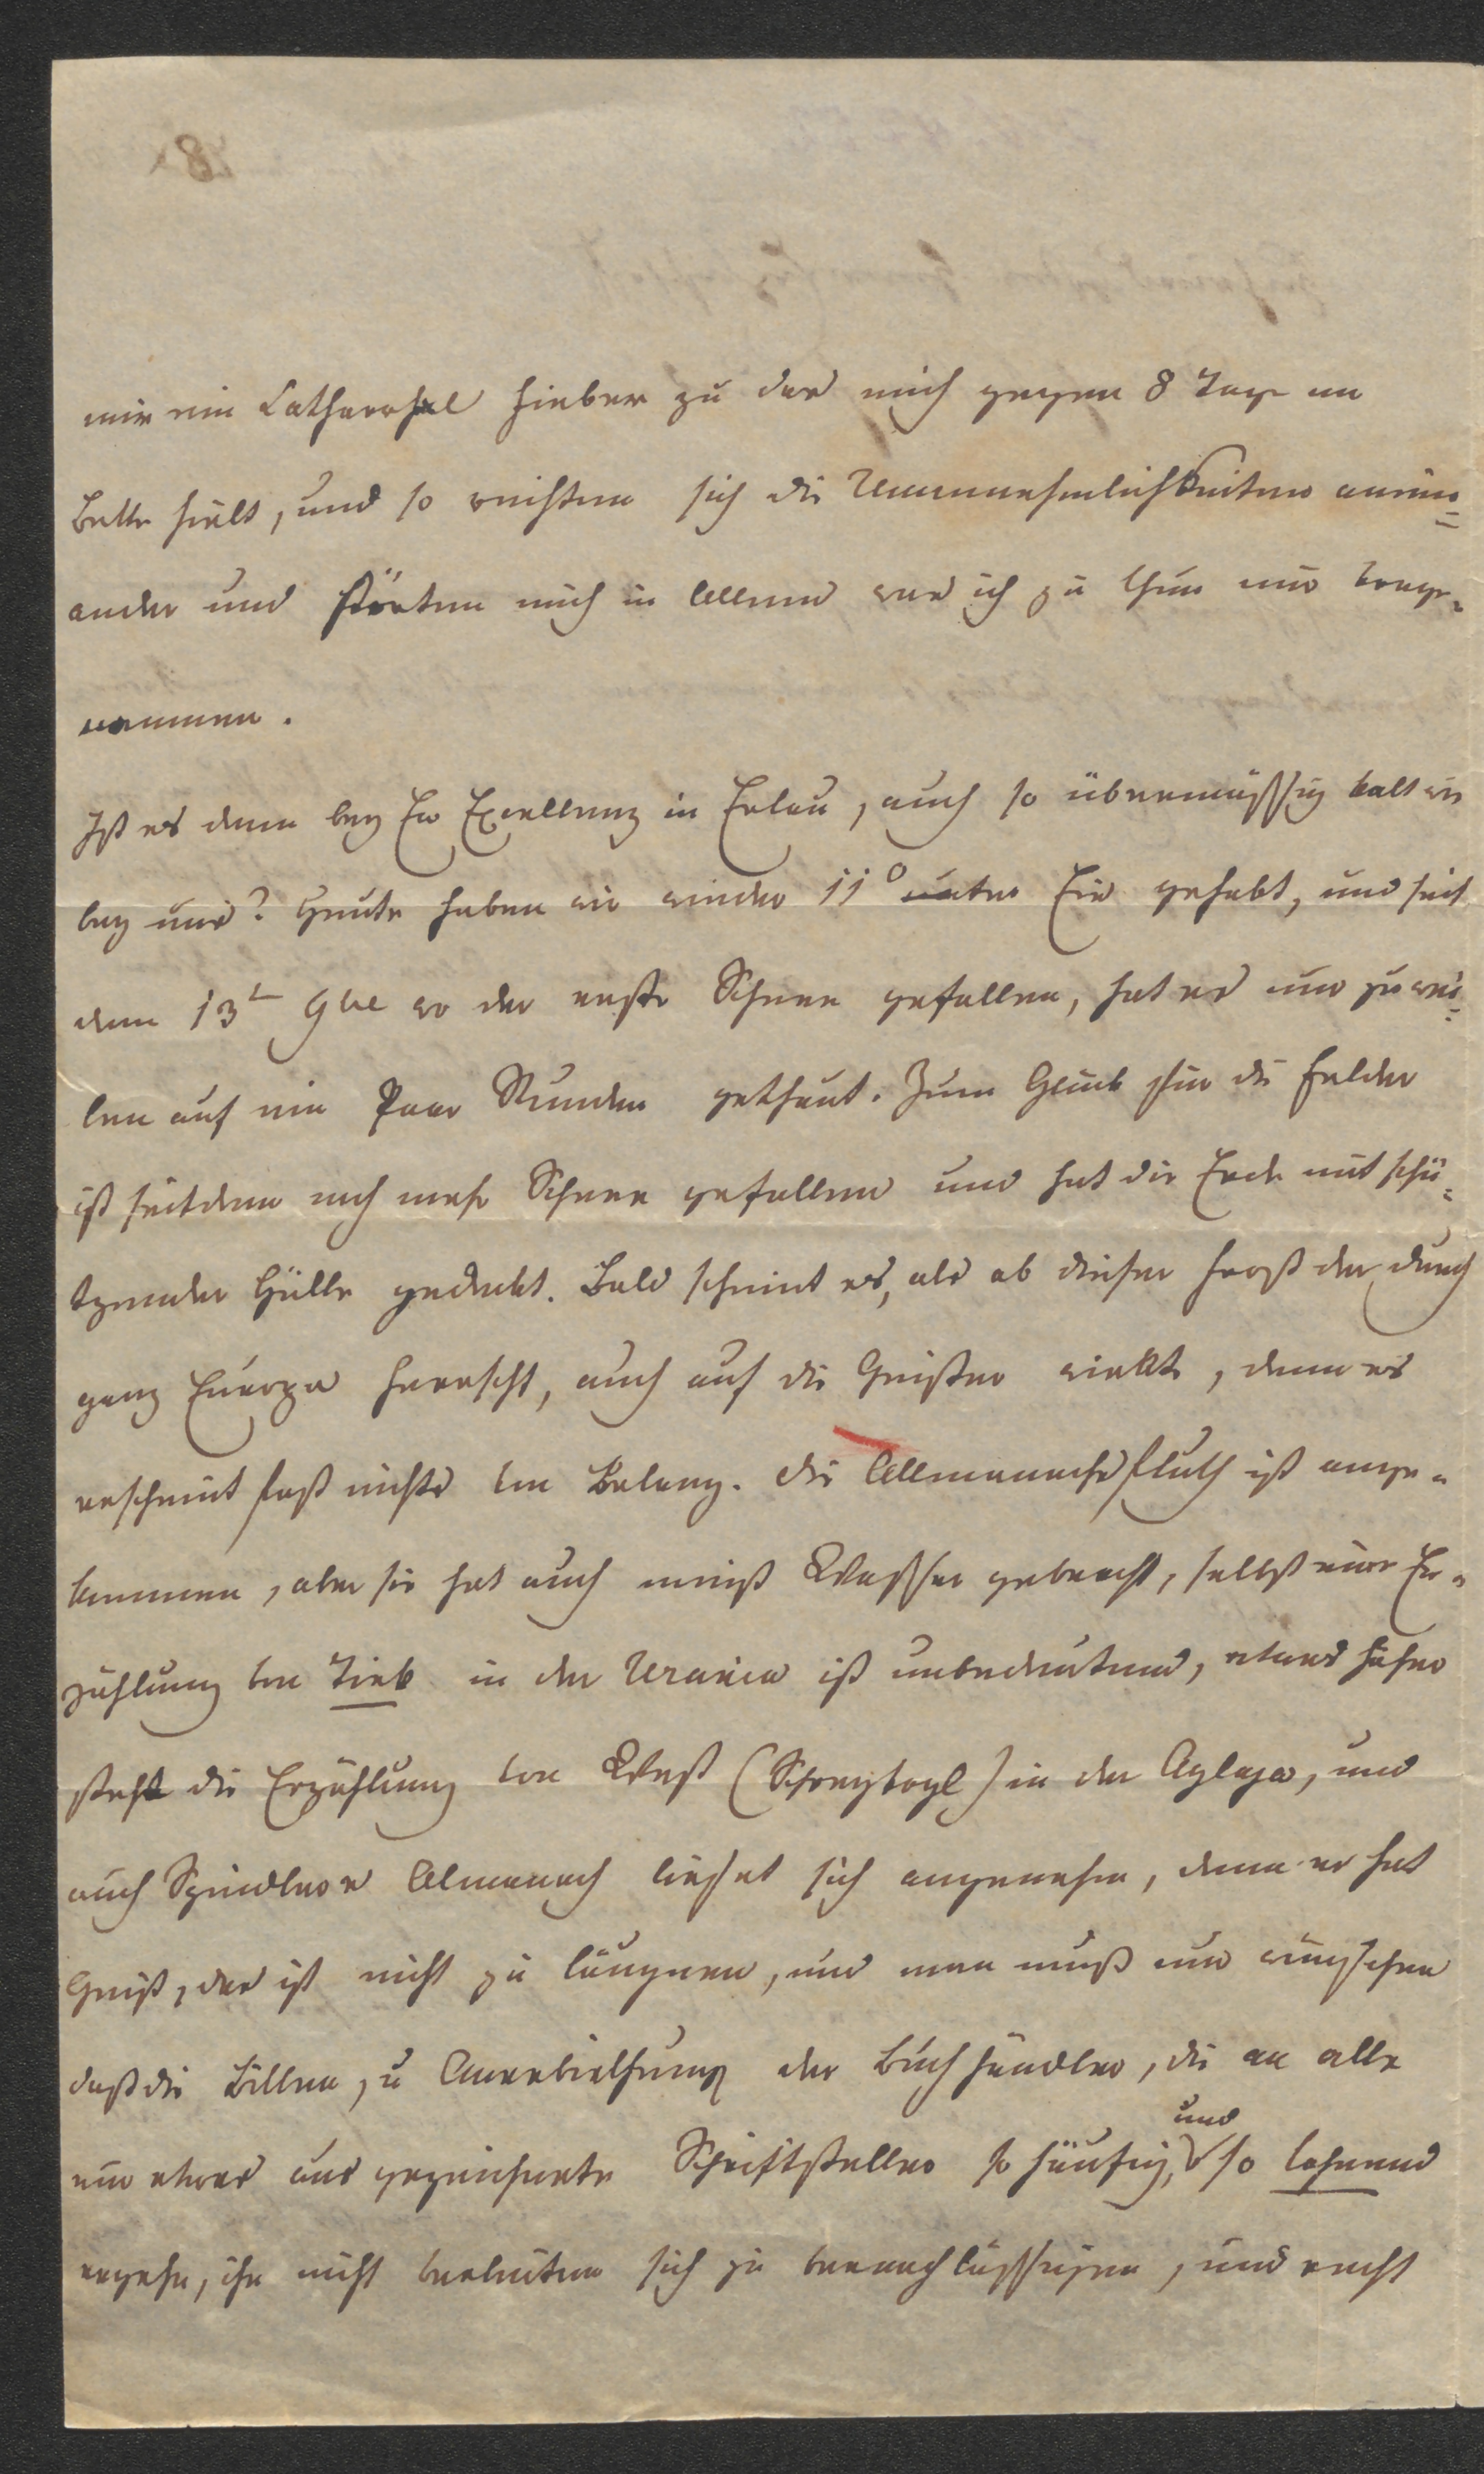 mir ein Catharrhal Fieber zu das mich gegen 8 Tage im
Bette hielt, und so reihten sich die Unannehmlichkeiten anein=
ander und störten mich in Allem was ich zu thun mir vorge=
nommen.
Ist es denn bey Eu Excellenz in Erlau, auch so übermäßig kalt wie
bey uns? Heute haben wir wieder 11° unter Eis gehabt, und seit
dem 13t 9bre wo der erste Schnee gefallen, hat es nur zuwei=
len auf ein Paar Stunden gethaut. Zum Glück für die Felder
ist seitdem noch mehr Schnee gefallen und hat die Erde mit schü=
tzender Hülle gedeckt. Bald scheint es, als ob dieser Frost der durch
ganz Europa herrscht, auch auf die Geister wirkte, denn es
erscheint fast nichts von Belang. Die Allmanachsfluth ist ange=
kommen, aber sie hat auch meist Wasser gebracht, selbst eine Er=
zählung von Tiek in der Urania ist unbedeutend, etwas höher
steht die Erzählung von West (Schreyvogl) in der Aglaja, und
auch Spindlers Almanach liest sich angenehm, denn er hat
Geist, das ist nicht zu läugnen, und man muß nur wünschen
daß die Bitten, u Anerbiethung der Buchhändler, die an alle
nur etwas ausgezeichnete Schriftsteller so häufig, und so lohnend
ergehn, ihn nicht verleiten sich zu vernachlässigen, und recht